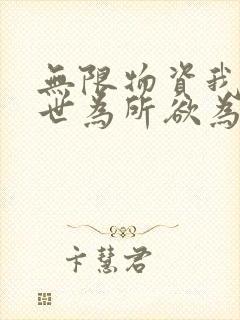 無限物資我
世為所欲為
卞慧君